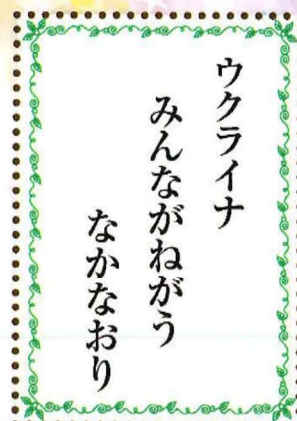 ウクライナ
みんながねがう
なかなおり